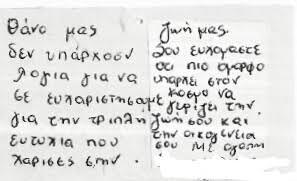 Θάνο μας
δεν υπάρχουν
λογια για να
σε ευχαριστησουμε
για την τριπλή
ευτυχία που
χαρισες στην
ζωή μας.
Σου ευχομαστε
οτι πιο ομορφο
υπάρχει στον
κοσμο να
γεμίζει την
ζωή σου και
την οικογένεια
σου ΜΕ αγαπη